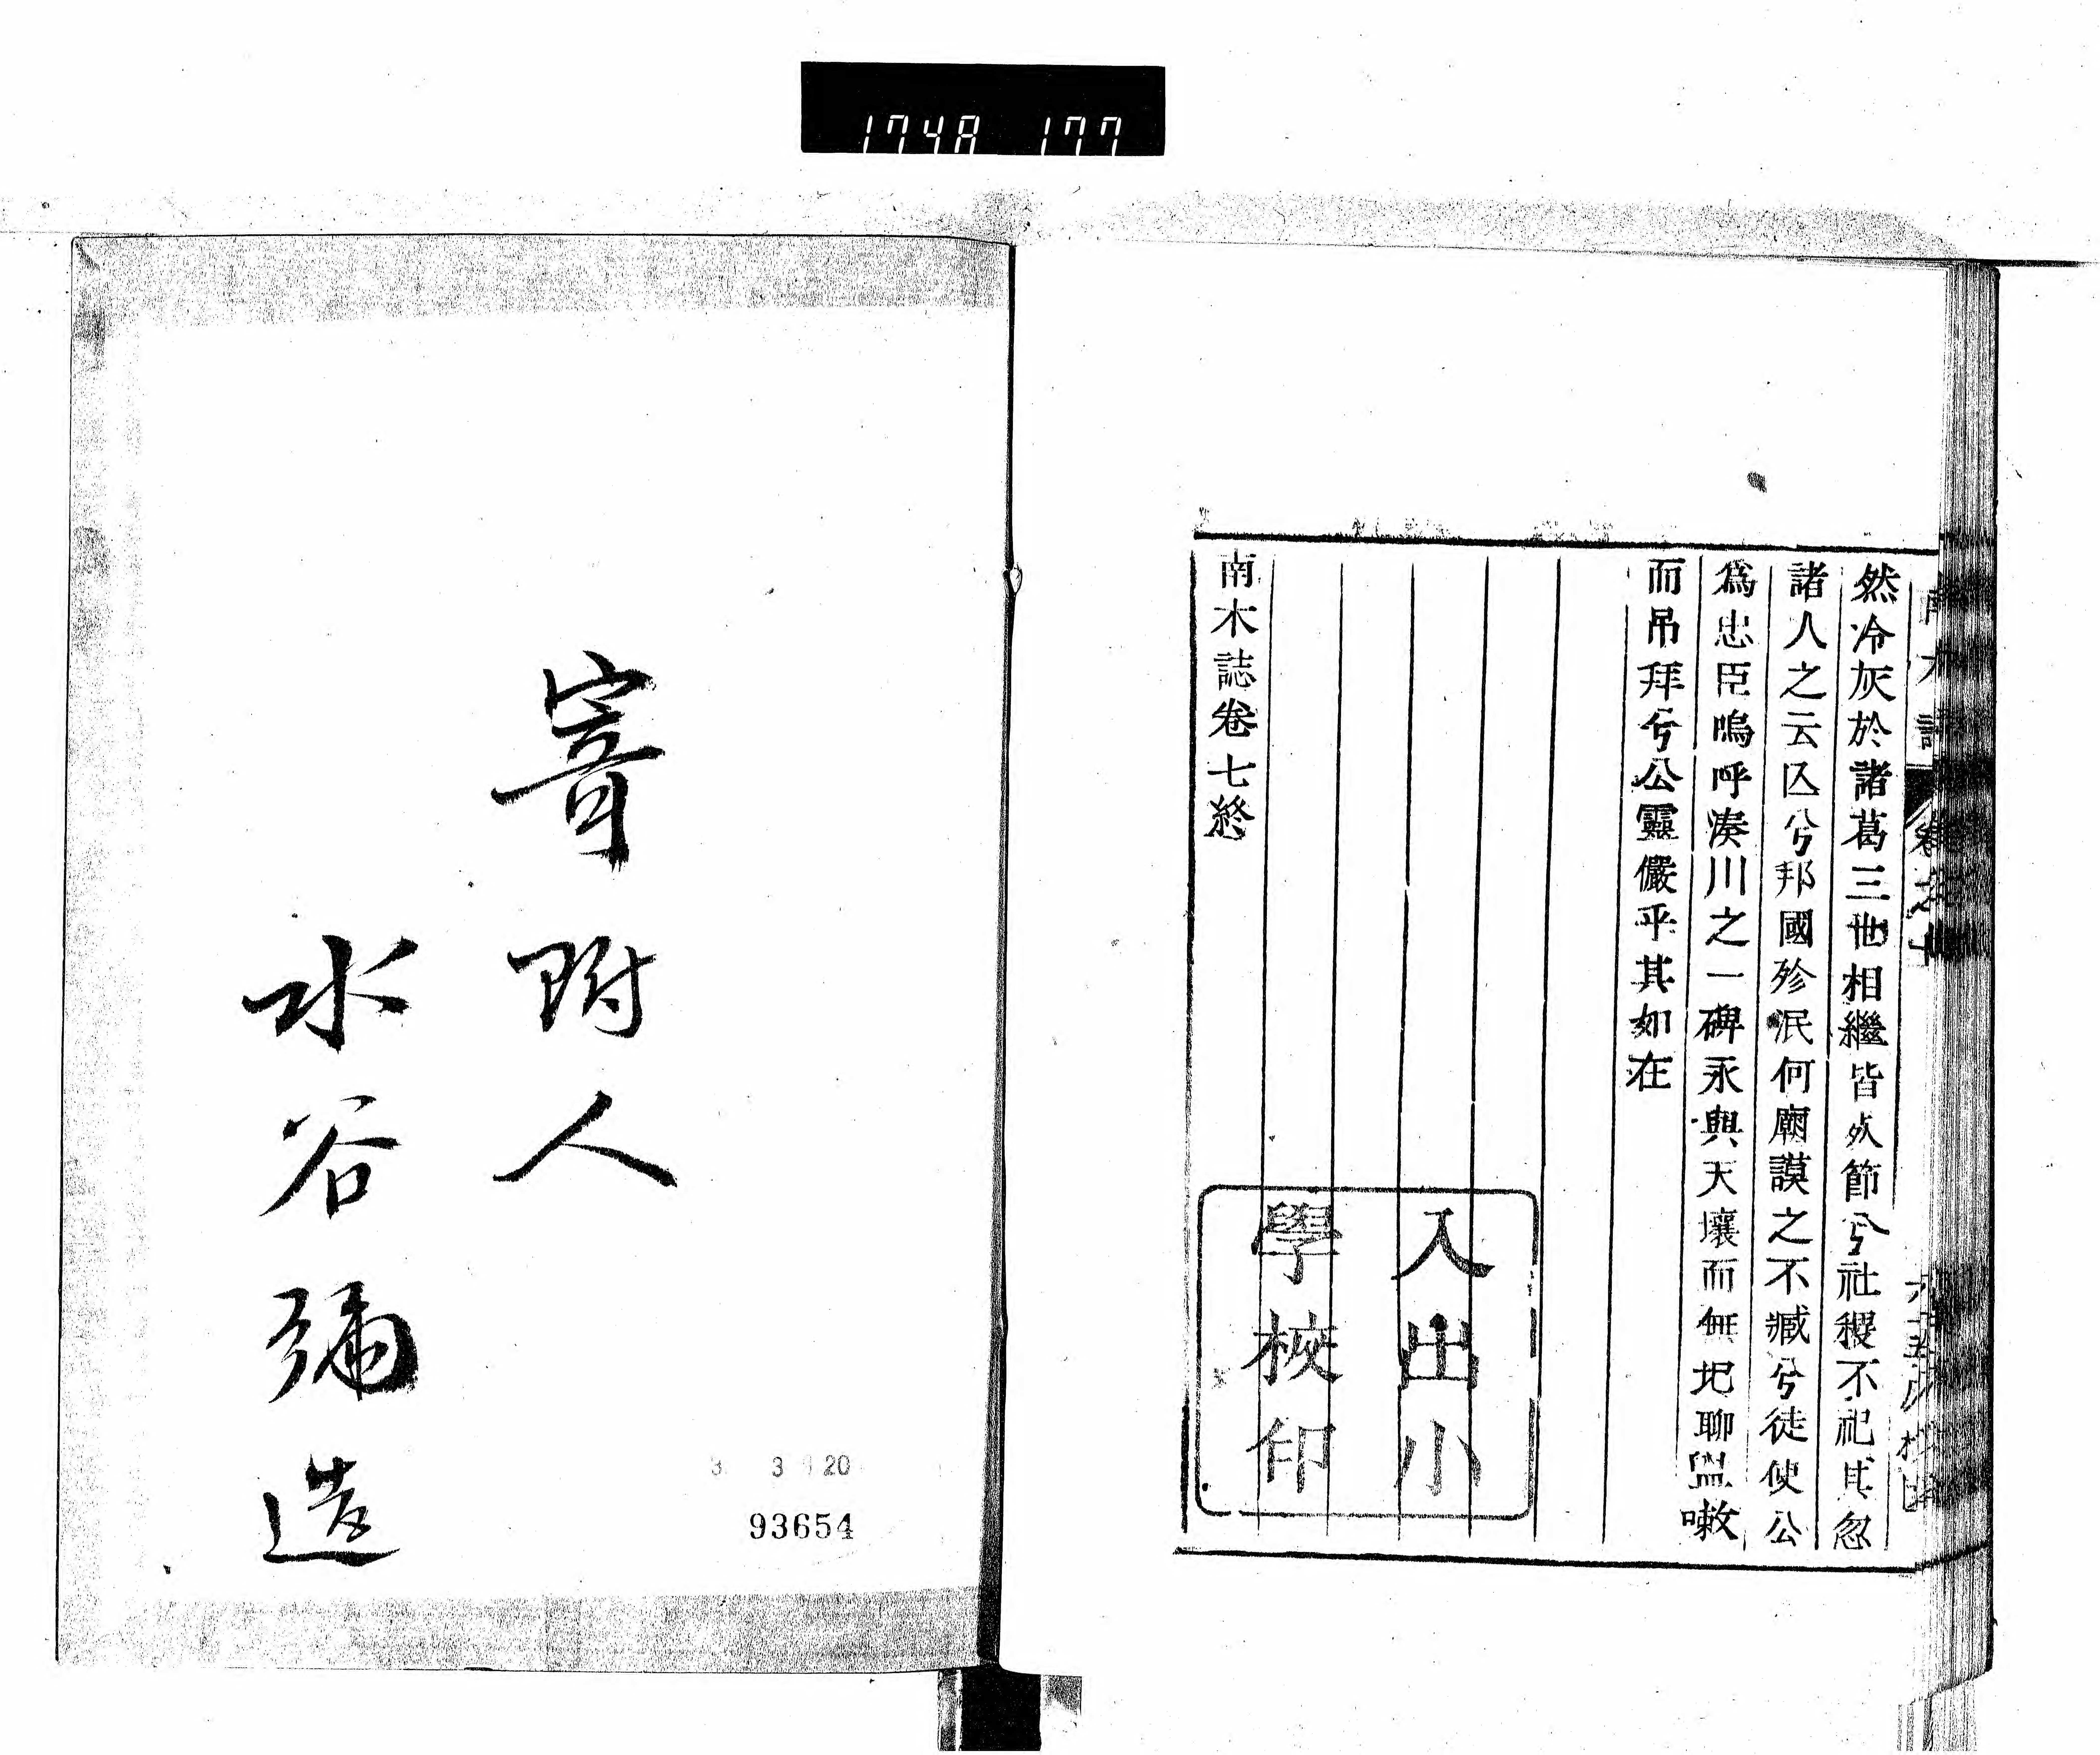 1748 177
然冷灰於諸葛三世相繼皆死節兮社稷不祀其忽
諸人之云亾兮邦國殄泯何廟謨之不臧兮徒使公
爲忠臣嗚呼湊川之一碑永與天壤而無圮聊盥嗽
而吊拜兮公靈儼乎其如在
南木誌卷七終
入出小
學校印
寄附人
水谷彌造
3 3 20
93654